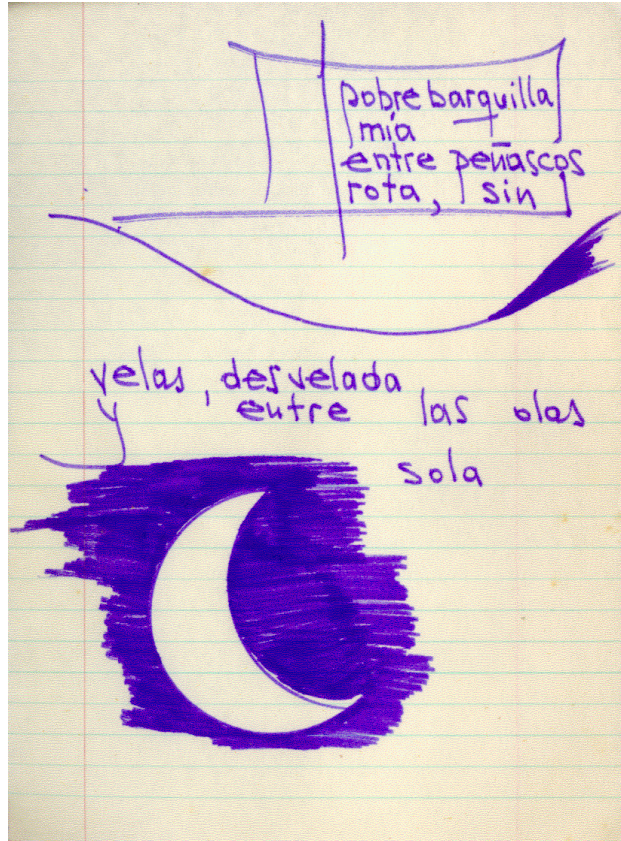 pobre barquilla
mía
entre peñascos
rota, sin
velas, desvelada
y entre las olas
sola